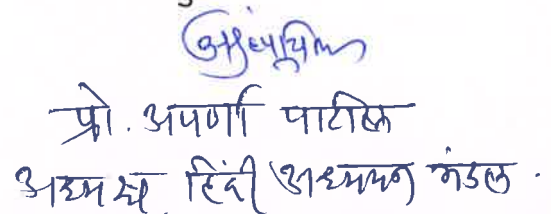 प्रो. अपर्णा पाटील
अध्यक्ष, हिंदी अध्ययन मंडल.